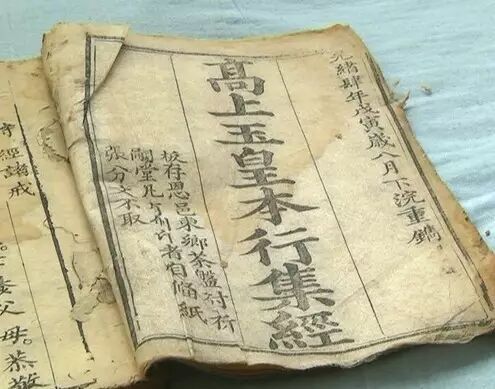 光緒肆年戊寅歲八月下浣重鐫
髙上玉皇本行集經
板存恩邑東鄉茶盤村衍
堂凡印者自備紙
張分文不取
經諸戒
父母。恭敬